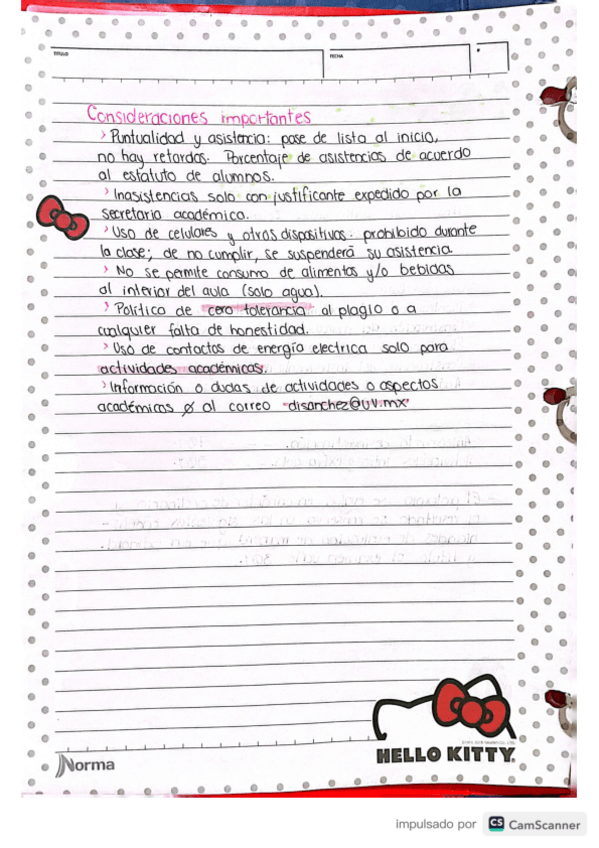 TITULO
FECHA
Consideraciones importantes
> Puntualidad y asistencia: pase de lista al inicio,
no hay retardos. Porcentaje de asistencias de acuerdo
al estatuto de alumnos.
> Inasistencias solo con justificante expedido por la
secretaria académica.
> Uso de celulares y otros dispositivos: prohibido durante
la clase; de no cumplir, se suspenderá su asistencia
> No se permite consumo de alimentos y/o bebidas
al interior del aula (solo agua).
> Política de cero tolerancia al plagio o a
cualquier falta de honestidad.
> Uso de contactos de energía electrica solo para
actividades académicas.
> Información o dudas de actividades o aspectos
académicos al correo disanchez@uv.mx
HELLO KITTY
Norma
impulsado por CS CamScanner